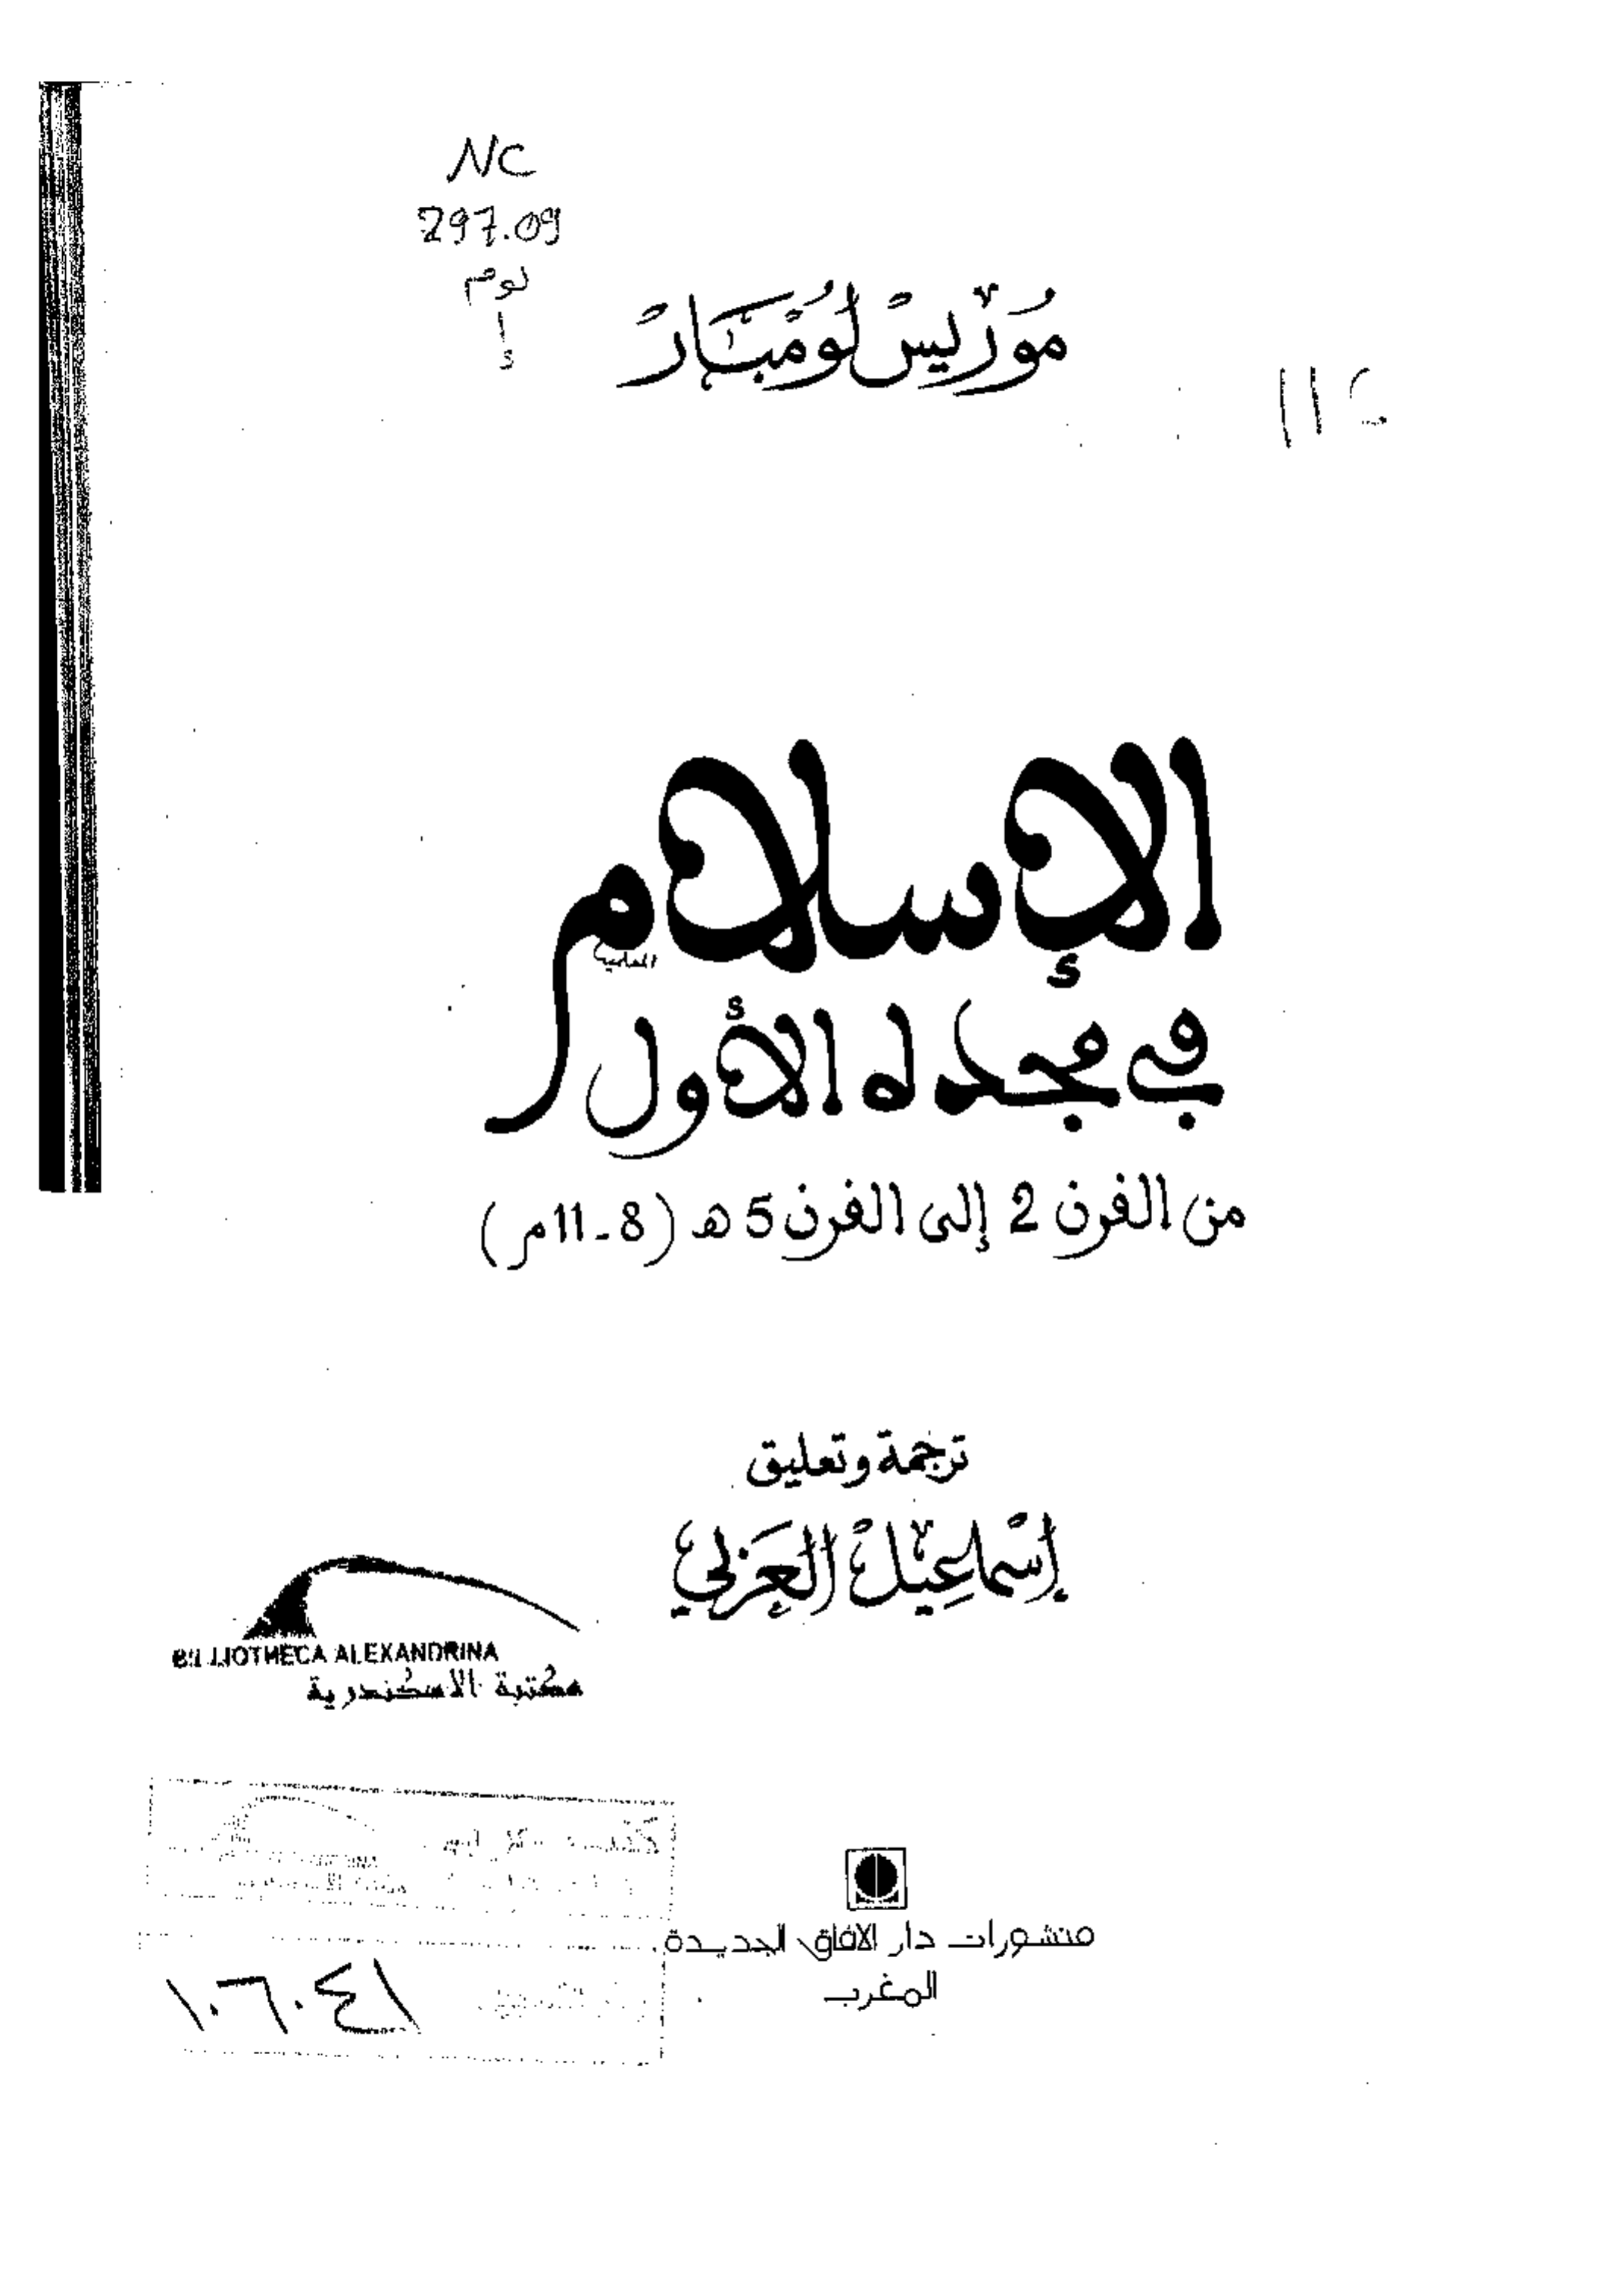 NC
297.09
لوم
إ
مُوْرِيسْ لُومْبَارْ
الإسلام
في مجده الأول
من القرن 2 إلى القرن 5 هـ (8 ـ 11 م)
ترجمة وتعليق
إسْمَاعِيلْ العَرَبي
BIBLIOTHECA ALEXANDRINA
مكتبة الاسكندرية
منشورات دار الآفاق الجديدة
المغرب
١٠٦٠٤١